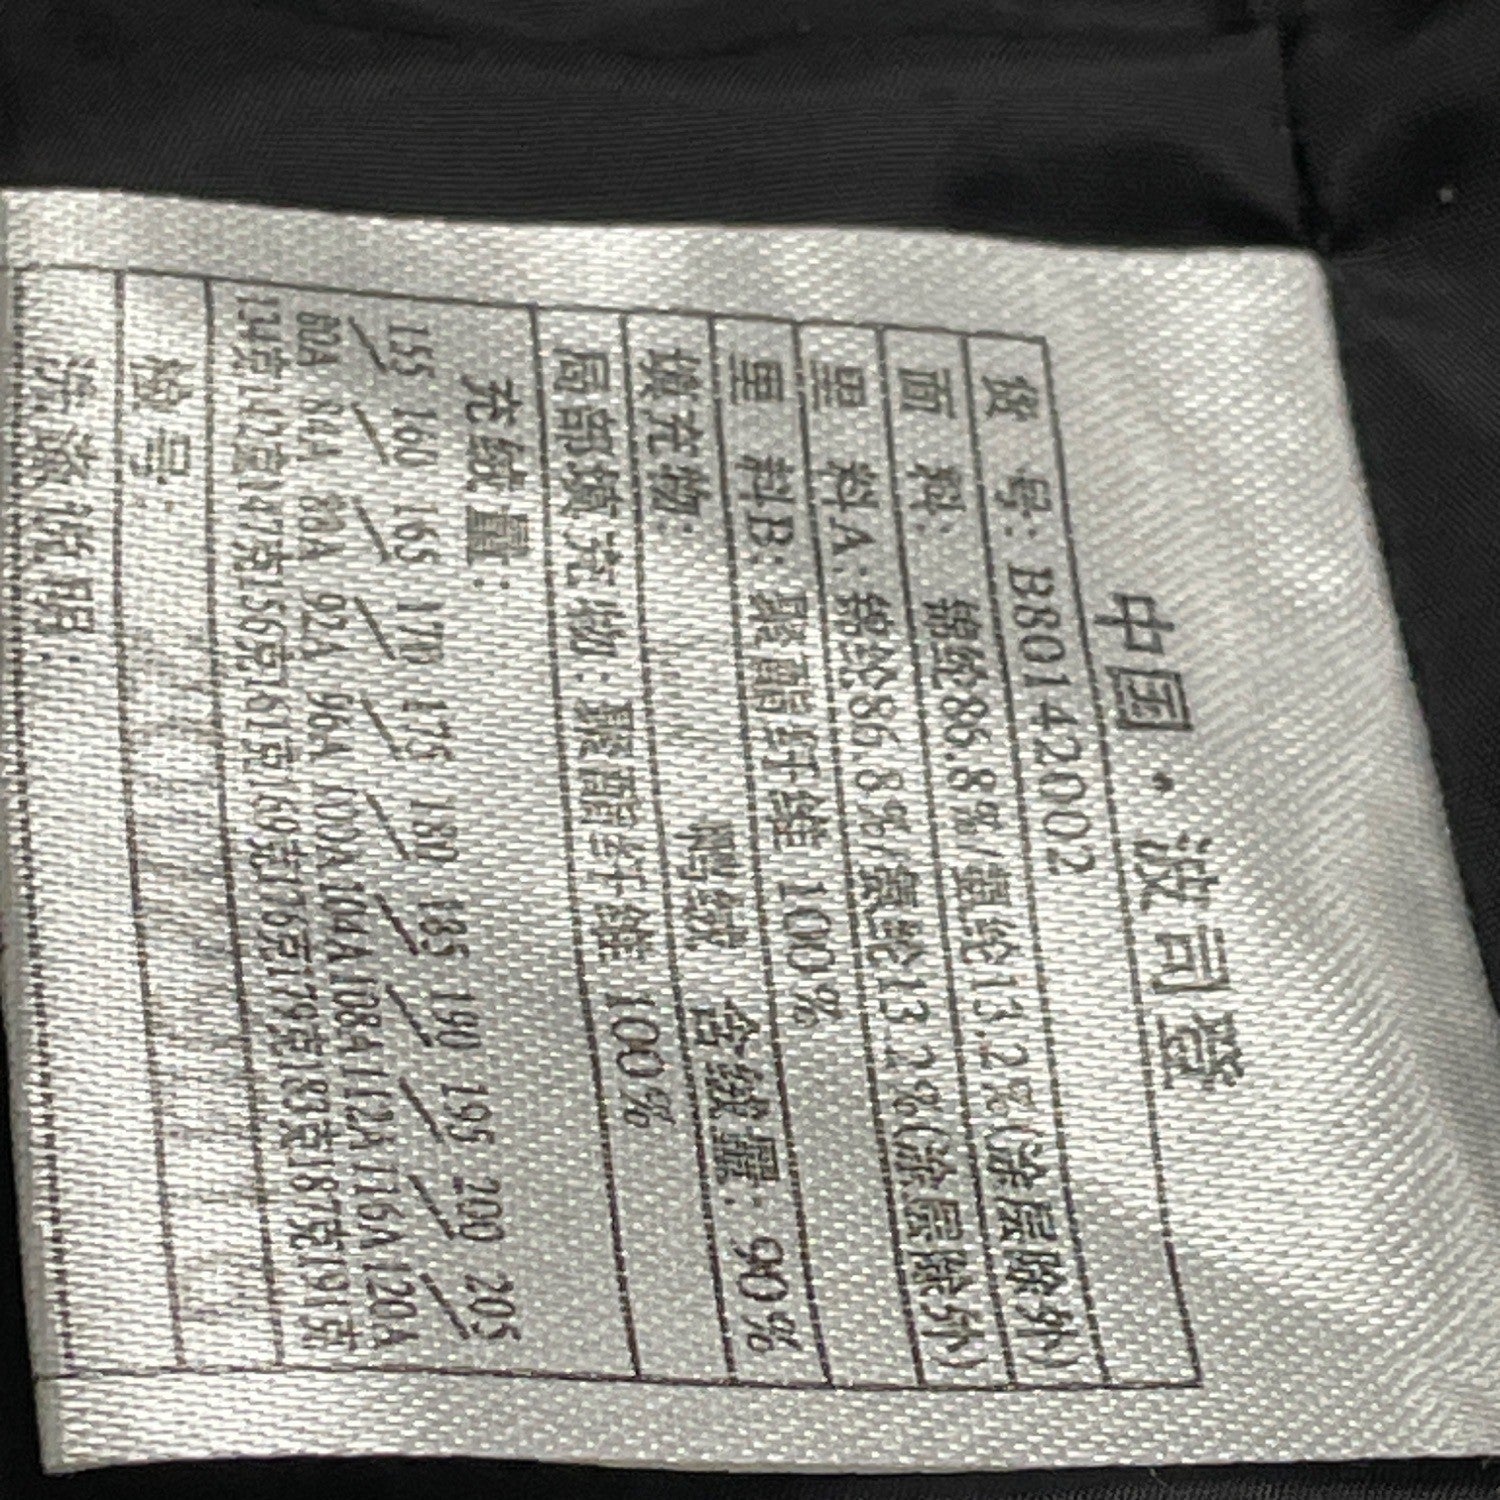 中国·波司登
货 号: B80142002
面 料: 锦纶86.8%/氨纶13.2%(涂层除外)
里 料A:锦纶86.8%/氨纶13.2%(涂层除外)
里 料B:聚酯纤维100%
填充物: 鸭绒 含绒量:90%
局部填充物:聚酯纤维100%
充绒量:
155 160 165 170 175 180 185 190 195 200 205
80A 84A 88A 92A 96A 100A 104A 108A 112A 116A 120A
134克142克147克156克161克169克176克179克183克187克191克
检号:
洗涤说明: